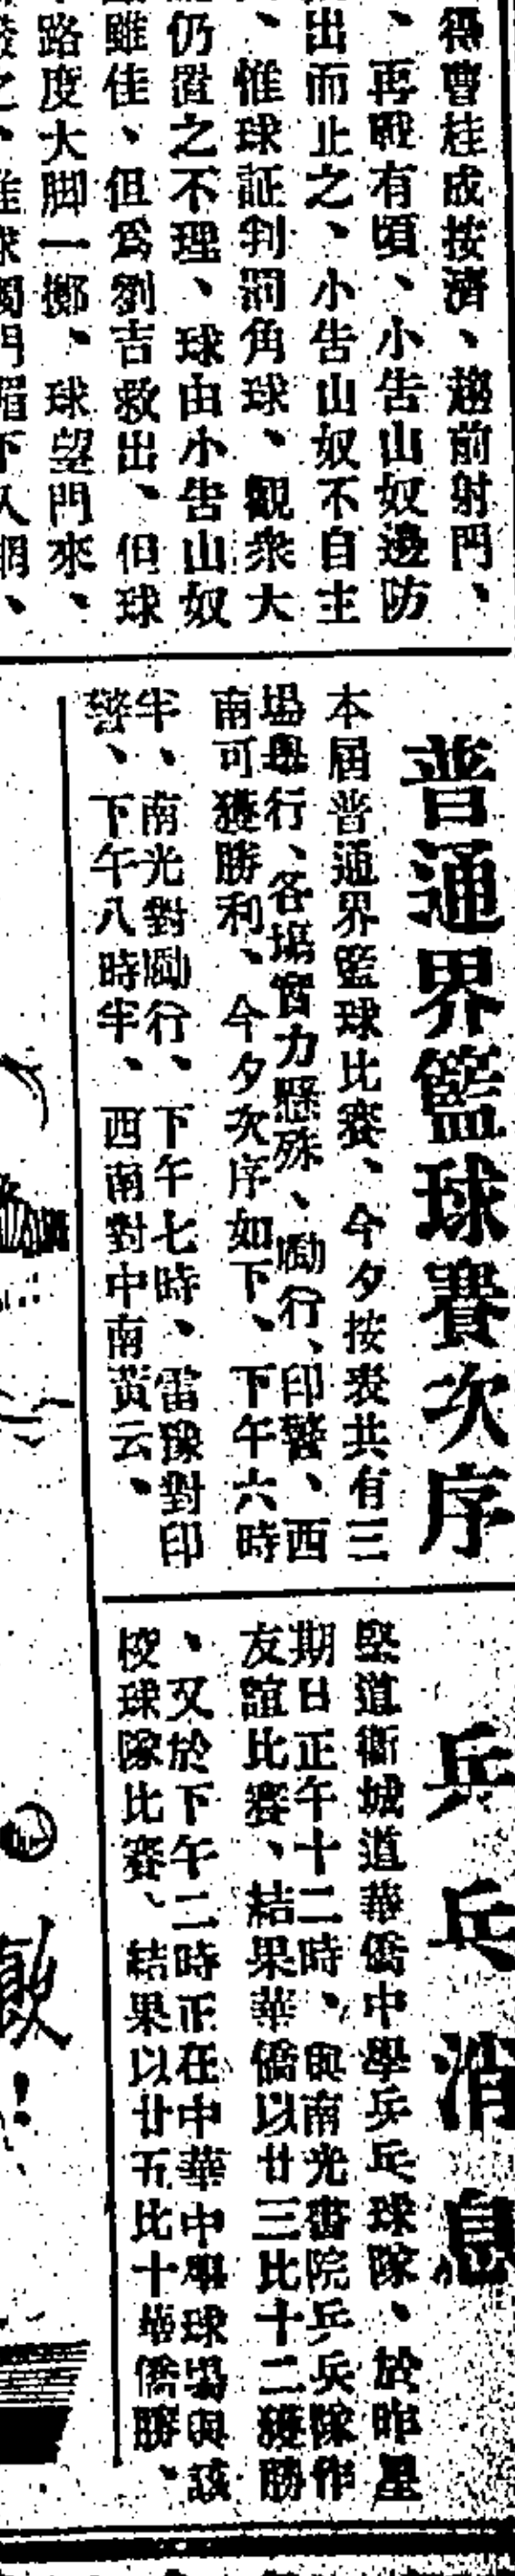 得曹桂成按濟、越前射門、
、再戰有頃、小告山奴邊防
出而止之、小告山奴不自主
、惟球証判罰角球、觀衆大
仍置之不理、球由小告山奴
雖佳、但爲劉吉救出、但球
路度大脚一擲、球望門來、
普通界籃球賽次序
本屆普通界籃球比賽、今夕按表共有三
塲舉行、各塲實力懸殊、勵行、印警、西
南可獲勝利、今夕次序如下、下午六時
半、南光對勵行、下午七時、雷豫對印
警、下午八時半、西南對中南黃云、
乒乓消息
堅道衞城道華僑中學乒乓球隊、於昨星
期日正午十二時、與南光書院乒乓隊作
友誼比賽、結果華僑以廿三比十二獲勝
、又於下午二時正在中華中學球塲與該
校球隊比賽、結果以廿五比十華僑勝、